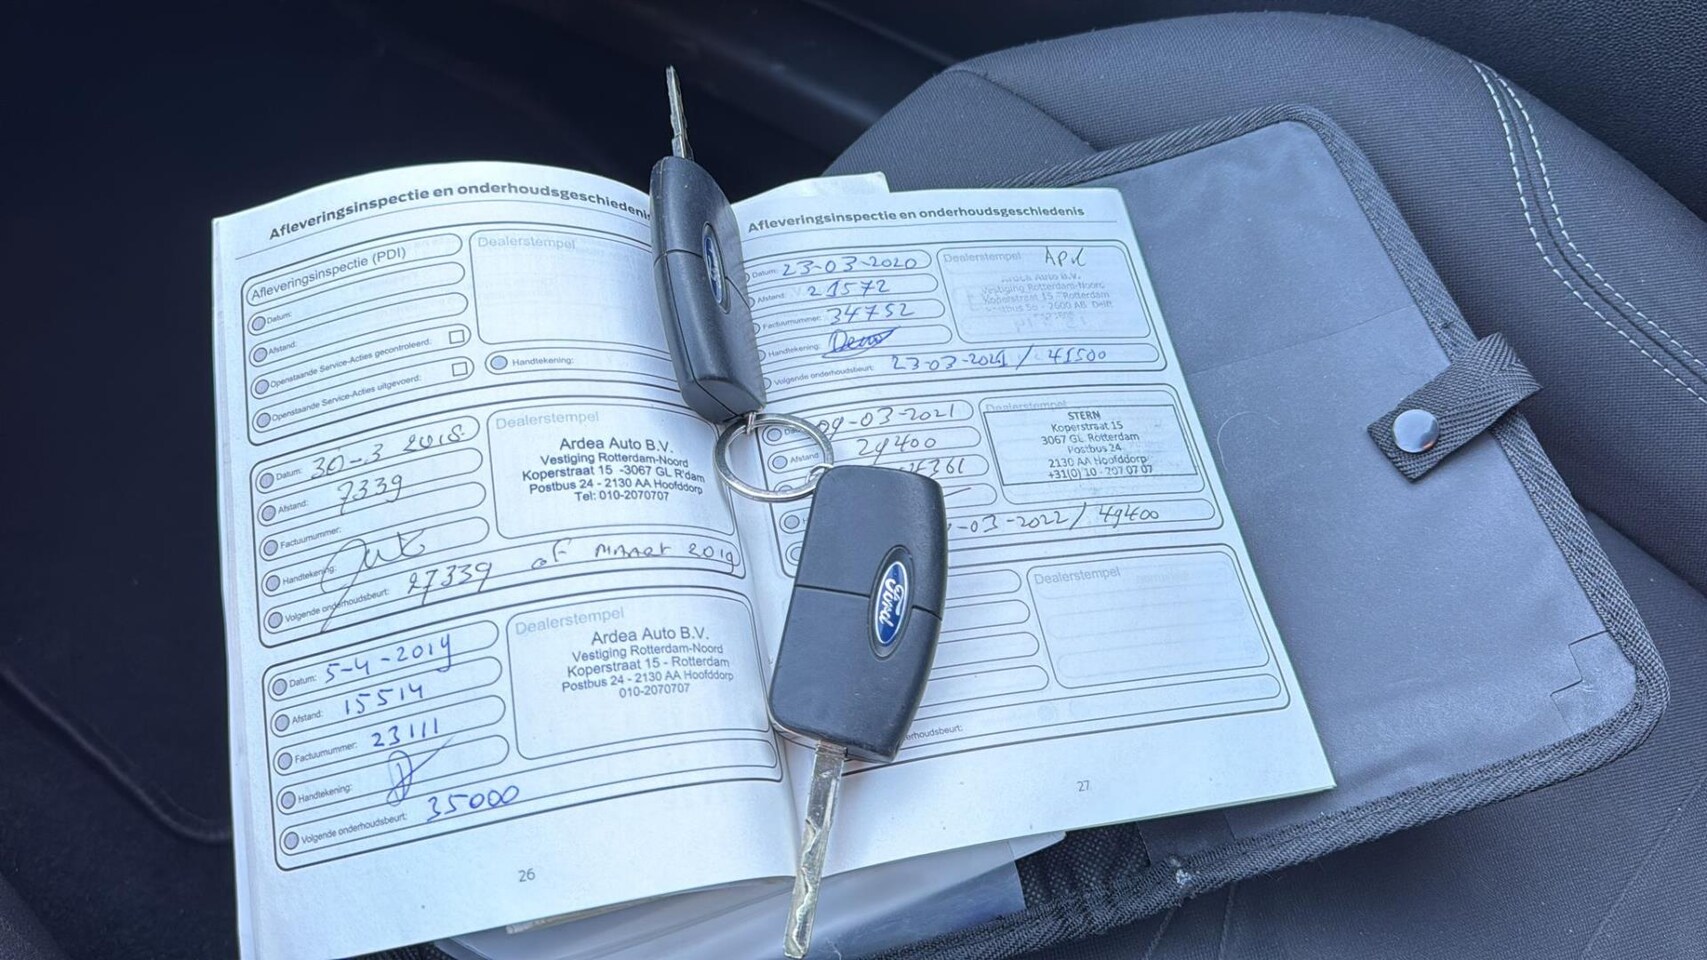 Afleveringsinspectie en onderhoudsgeschiedenis
Afleveringsinspectie (PDI)
Datum:
Afstand:
Openstaande Service-Acties gecontroleerd:
Openstaande Service-Acties uitgevoerd:
Dealerstempel
Handtekening:
Datum: 30-3 2018
Afstand: 7339
Factuurnummer:
Handtekening:
Volgende onderhoudsbeurt: 27339 of MAART 2019
Dealerstempel
Ardea Auto B.V.
Vestiging Rotterdam-Noord
Koperstraat 15 -3067 GL R'dam
Postbus 24 - 2130 AA Hoofddorp
Tel: 010-2070707
Datum: 5-4-2019
Afstand: 15514
Factuurnummer: 23111
Handtekening:
Volgende onderhoudsbeurt: 35000
Dealerstempel
Ardea Auto B.V.
Vestiging Rotterdam-Noord
Koperstraat 15 - Rotterdam
Postbus 24 - 2130 AA Hoofddorp
010-2070707
26
Afleveringsinspectie en onderhoudsgeschiedenis
Datum: 23-03-2020
Afstand: 21572
Factuurnummer: 34752
Handtekening:
Volgende onderhoudsbeurt: 23-03-2021 / 41500
Dealerstempel
Ardea Auto B.V.
Vestiging Rotterdam-Noord
Koperstraat 15 Rotterdam
09-03-2021
Afstand 29400
4361
-03-2022 / 49400
Dealerstempel
STERN
Koperstraat 15
3067 GL Rotterdam
Postbus 24
2130 AA Hoofddorp
+31(0)10 - 207 07 07
Dealerstempel
27
Ford